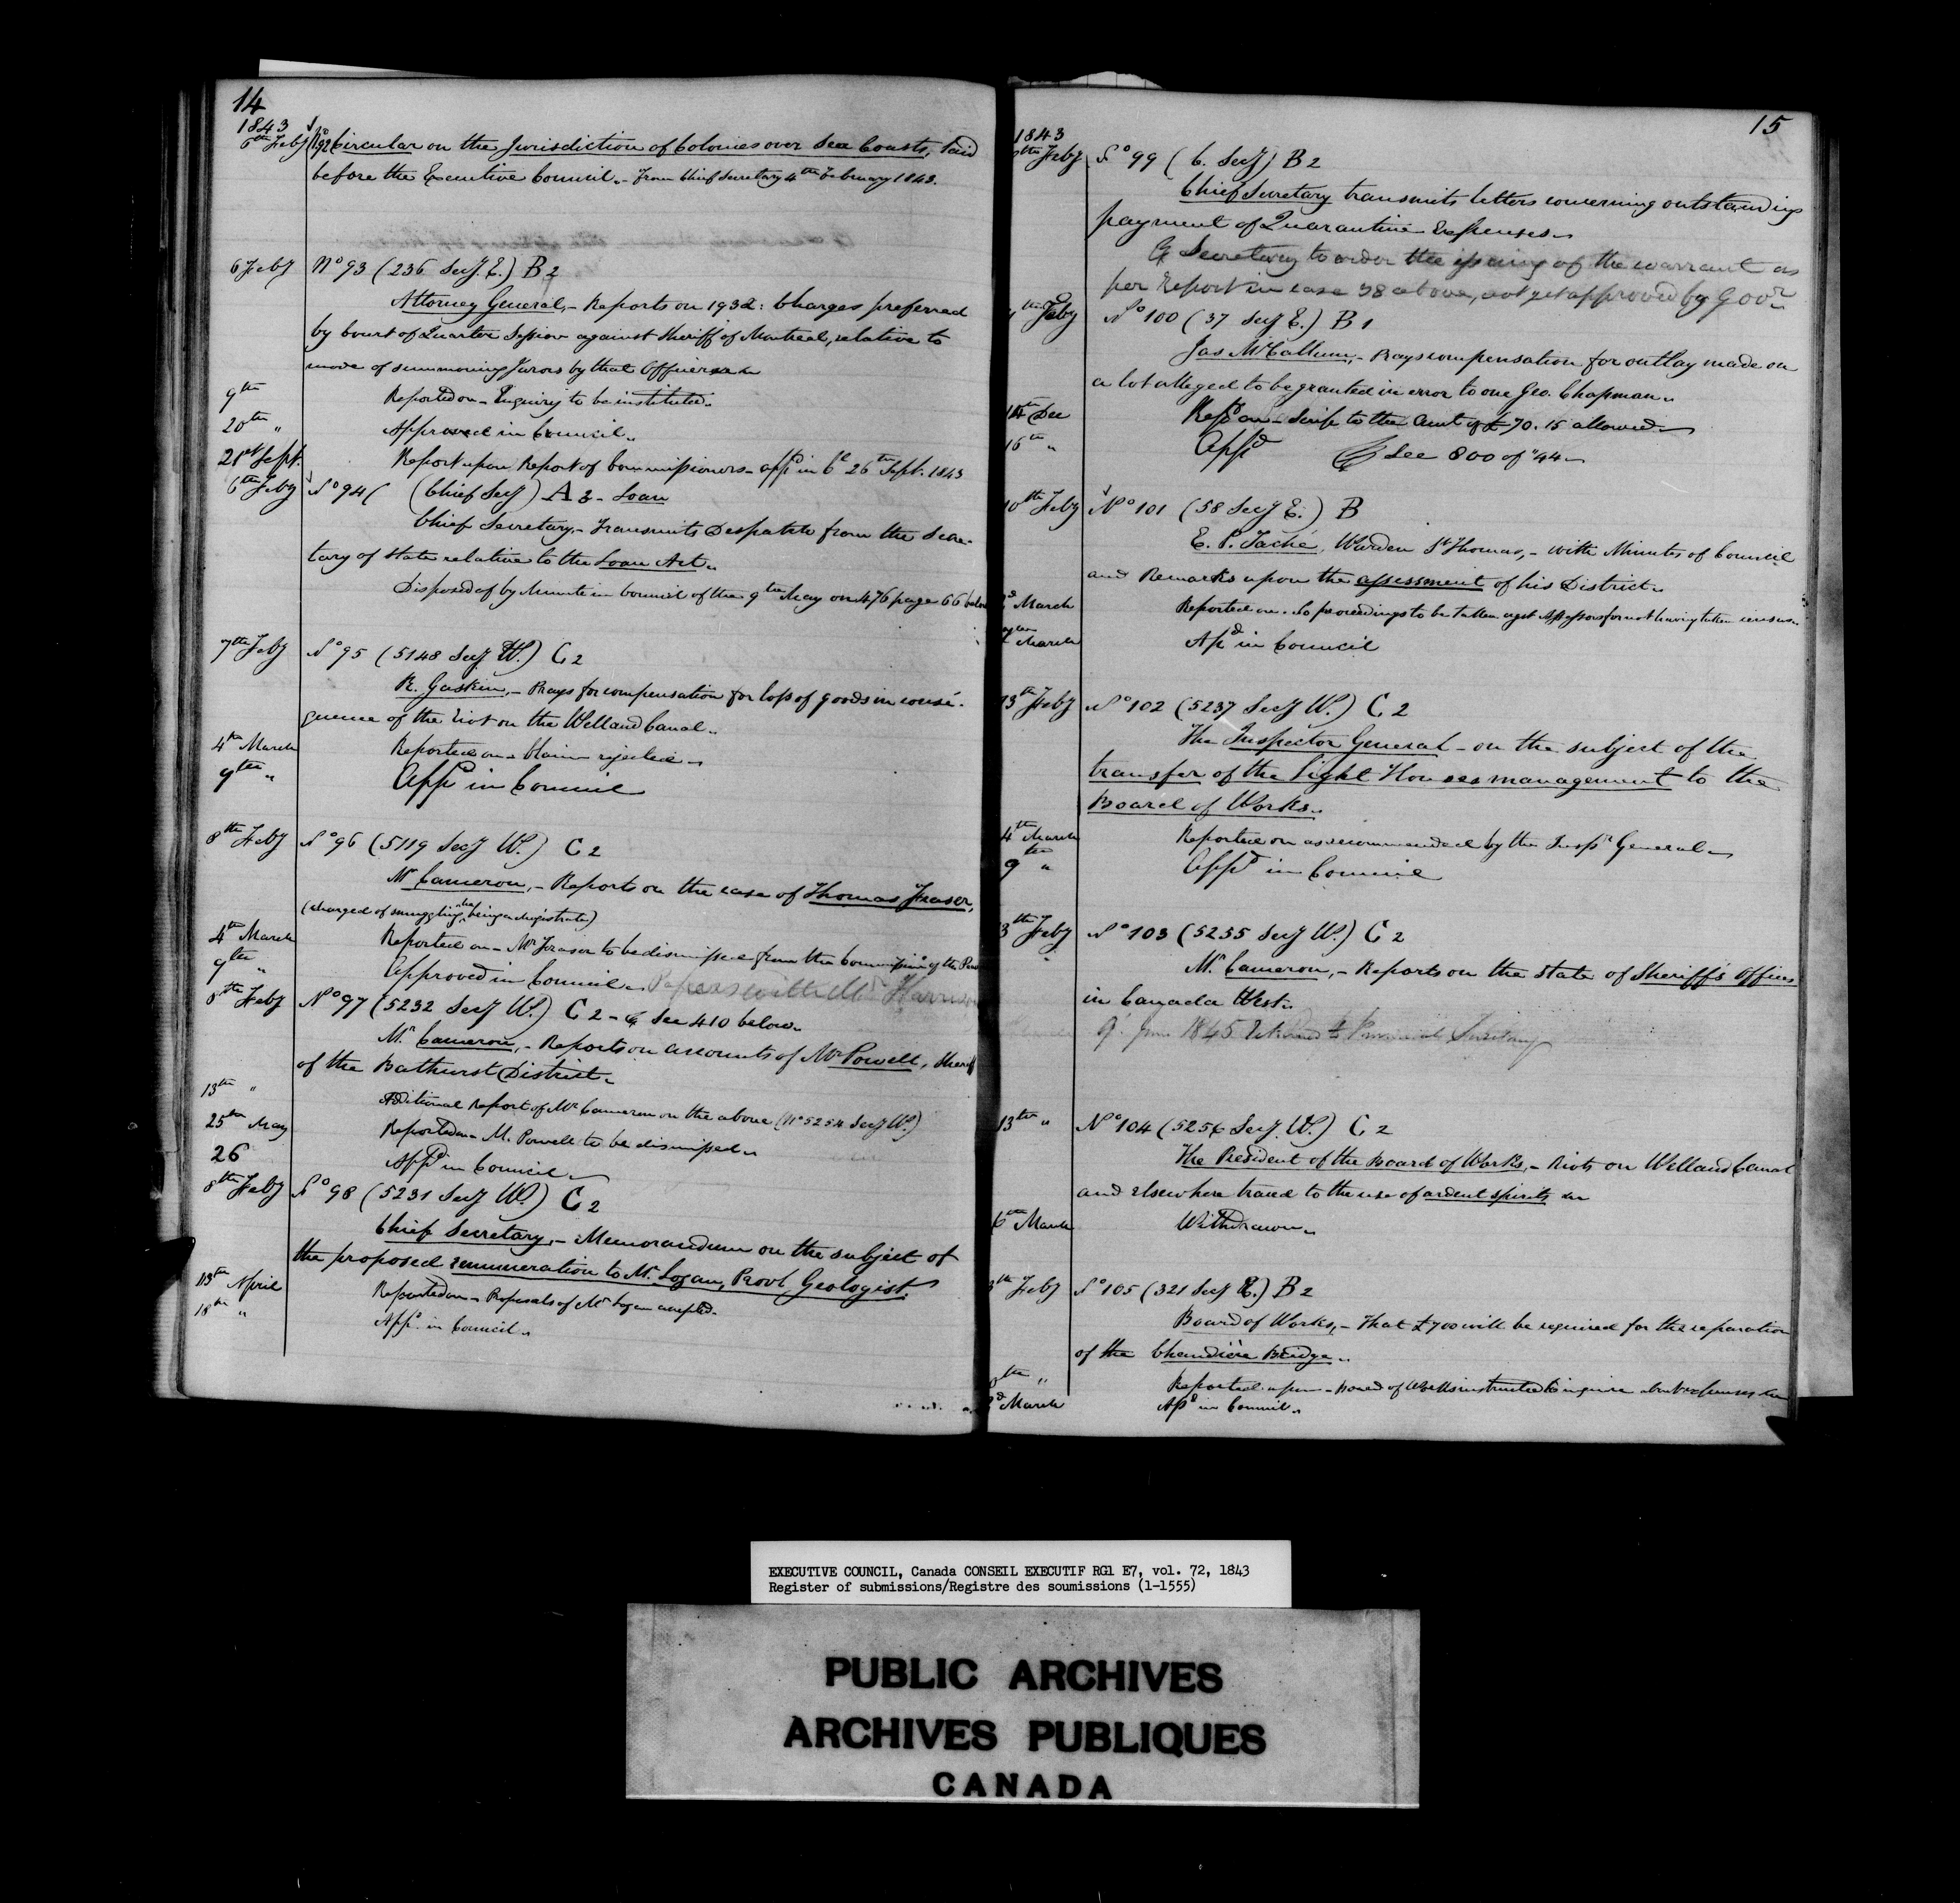 14
1843
6th Feby No 92 Circular on the Jurisdiction of Colonies over Sea Coasts, laid
before the Executive Council. - From Chief Secretary 4th February 1843.
6 Feby No 93 (236 Secy. E.) B 2
Attorney General, - Reports on 1932: Charges preferred
by Court of Quarter Session against Sheriff of Montreal, relative to
mode of summoning Jurors by that Officer
9th Reported on - Enquiry to be instituted.
20th " Approved in Council.
21st Sept. Report upon Report of Commissioners - appd in Cl 26th Sept. 1843
6th Feby No 94 ( (Chief Secy) A 3 - Loan
Chief Secretary. - Transmits Despatch from the Secre-
tary of State relative to the Loan Act.
Disposed of by Minute in Council of the 9th May on 476 page 66 below
7th Feby No 95 (5148 Secy W.) C 2
R. Gaskin, - Prays for compensation for loss of goods in conse-
quence of the riot on the Welland Canal.
4th March Reported on - Claim rejected.
9th " Appd in Council
8th Feby No 96 (5119 Secy W.) C 2
Mr Cameron, - Reports on the case of Thomas Fraser,
(charged of smuggling, he being a Magistrate)
4th March Reported on - Mr Fraser to be dismissed from the Commissn of the Peace
9th " Approved in Council. Papers with Mr Harrison
8th Feby No 97 (5232 Secy W.) C 2 - See 410 below.
Mr Cameron, - Reports on accounts of Mr Powell, Sheriff
of the Bathurst District.
13th " Additional Report of Mr Cameron on the above (No 5254 Secy W.)
25th May Reported on - M. Powell to be dismissed.
26 Appd in Council
8th Feby No 98 (5231 Secy W.) C 2
Chief Secretary, - Memorandum on the subject of
the proposed remuneration to Mr Logan, Provl Geologist.
13th April Reported on - Proposals of Mr Logan accepted.
18th " Appd in Council.
15
1843
th Feby No 99 (C. Secy) B 2
Chief Secretary transmits letters concerning outstanding
payment of Quarantine Expenses.
Secretary to order the issuing of the warrant as
per Report in case 38 above, not yet approved by Govr
th Feby No 100 (37 Secy E.) B 1
Jas McCallum, - Prays compensation for outlay made on
a lot alleged to be granted in error to one Geo. Chapman.
14th Dec Repd on - Scrip to the Amt of £70.15 allowed
16th " Appd See 800 of "44
10th Feby No 101 (58 Secy E.) B
E. P. Taché, Warden St Thomas, - with Minutes of Council
and Remarks upon the assessment of his District.
d March Reported on. No proceedings to be taken agst Assessors for not having taken census.
March Apd in Council
13th Feby No 102 (5237 Secy W.) C 2
The Inspector General - on the subject of the
transfer of the Light Houses management to the
Board of Works.
4th March Reported on as recommended by the Inspr General.
9th " Appd in Council
3th Feby No 103 (5255 Secy W.) C 2
Mr Cameron, - Reports on the state of Sheriff's Offices
in Canada West.
9. 1845 Returned to Provincial Secretary
13th " No 104 (5256 Secy. W.) C 2
The President of the Board of Works, - Riots on Welland Canal
and elsewhere traced to the use of ardent spirits
6th March Withdrawn.
3th Feby No 105 (321 Secy E.) B 2
Board of Works, - That £700 will be required for the reparation
of the Chaudière Bridge.
th " Reported upon - Board of Works instructed to inquire about expenses
d March Apd in Council.
EXECUTIVE COUNCIL, Canada CONSEIL EXECUTIF RG1 E7, vol. 72, 1843
Register of submissions/Registre des soumissions (1-1555)
PUBLIC ARCHIVES
ARCHIVES PUBLIQUES
CANADA